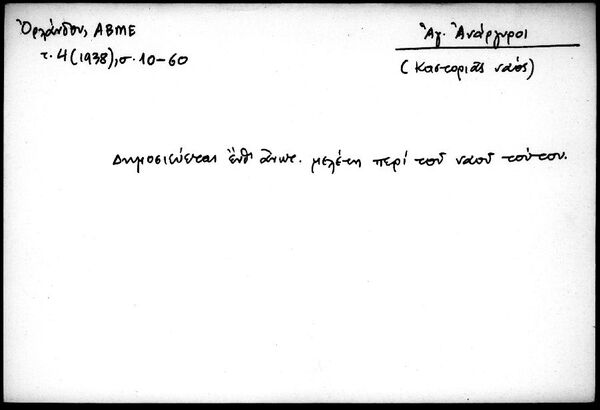 Ὀρλάνδου, ΑΒΜΕ
τ. 4 (1938), σ. 10-60
Ἅγ. Ἀνάργυροι
(Καστοριᾶς ναός)
Δημοσιεύεται ἔνθ' ἄνωτ. μελέτη περί τοῦ ναοῦ τούτου.